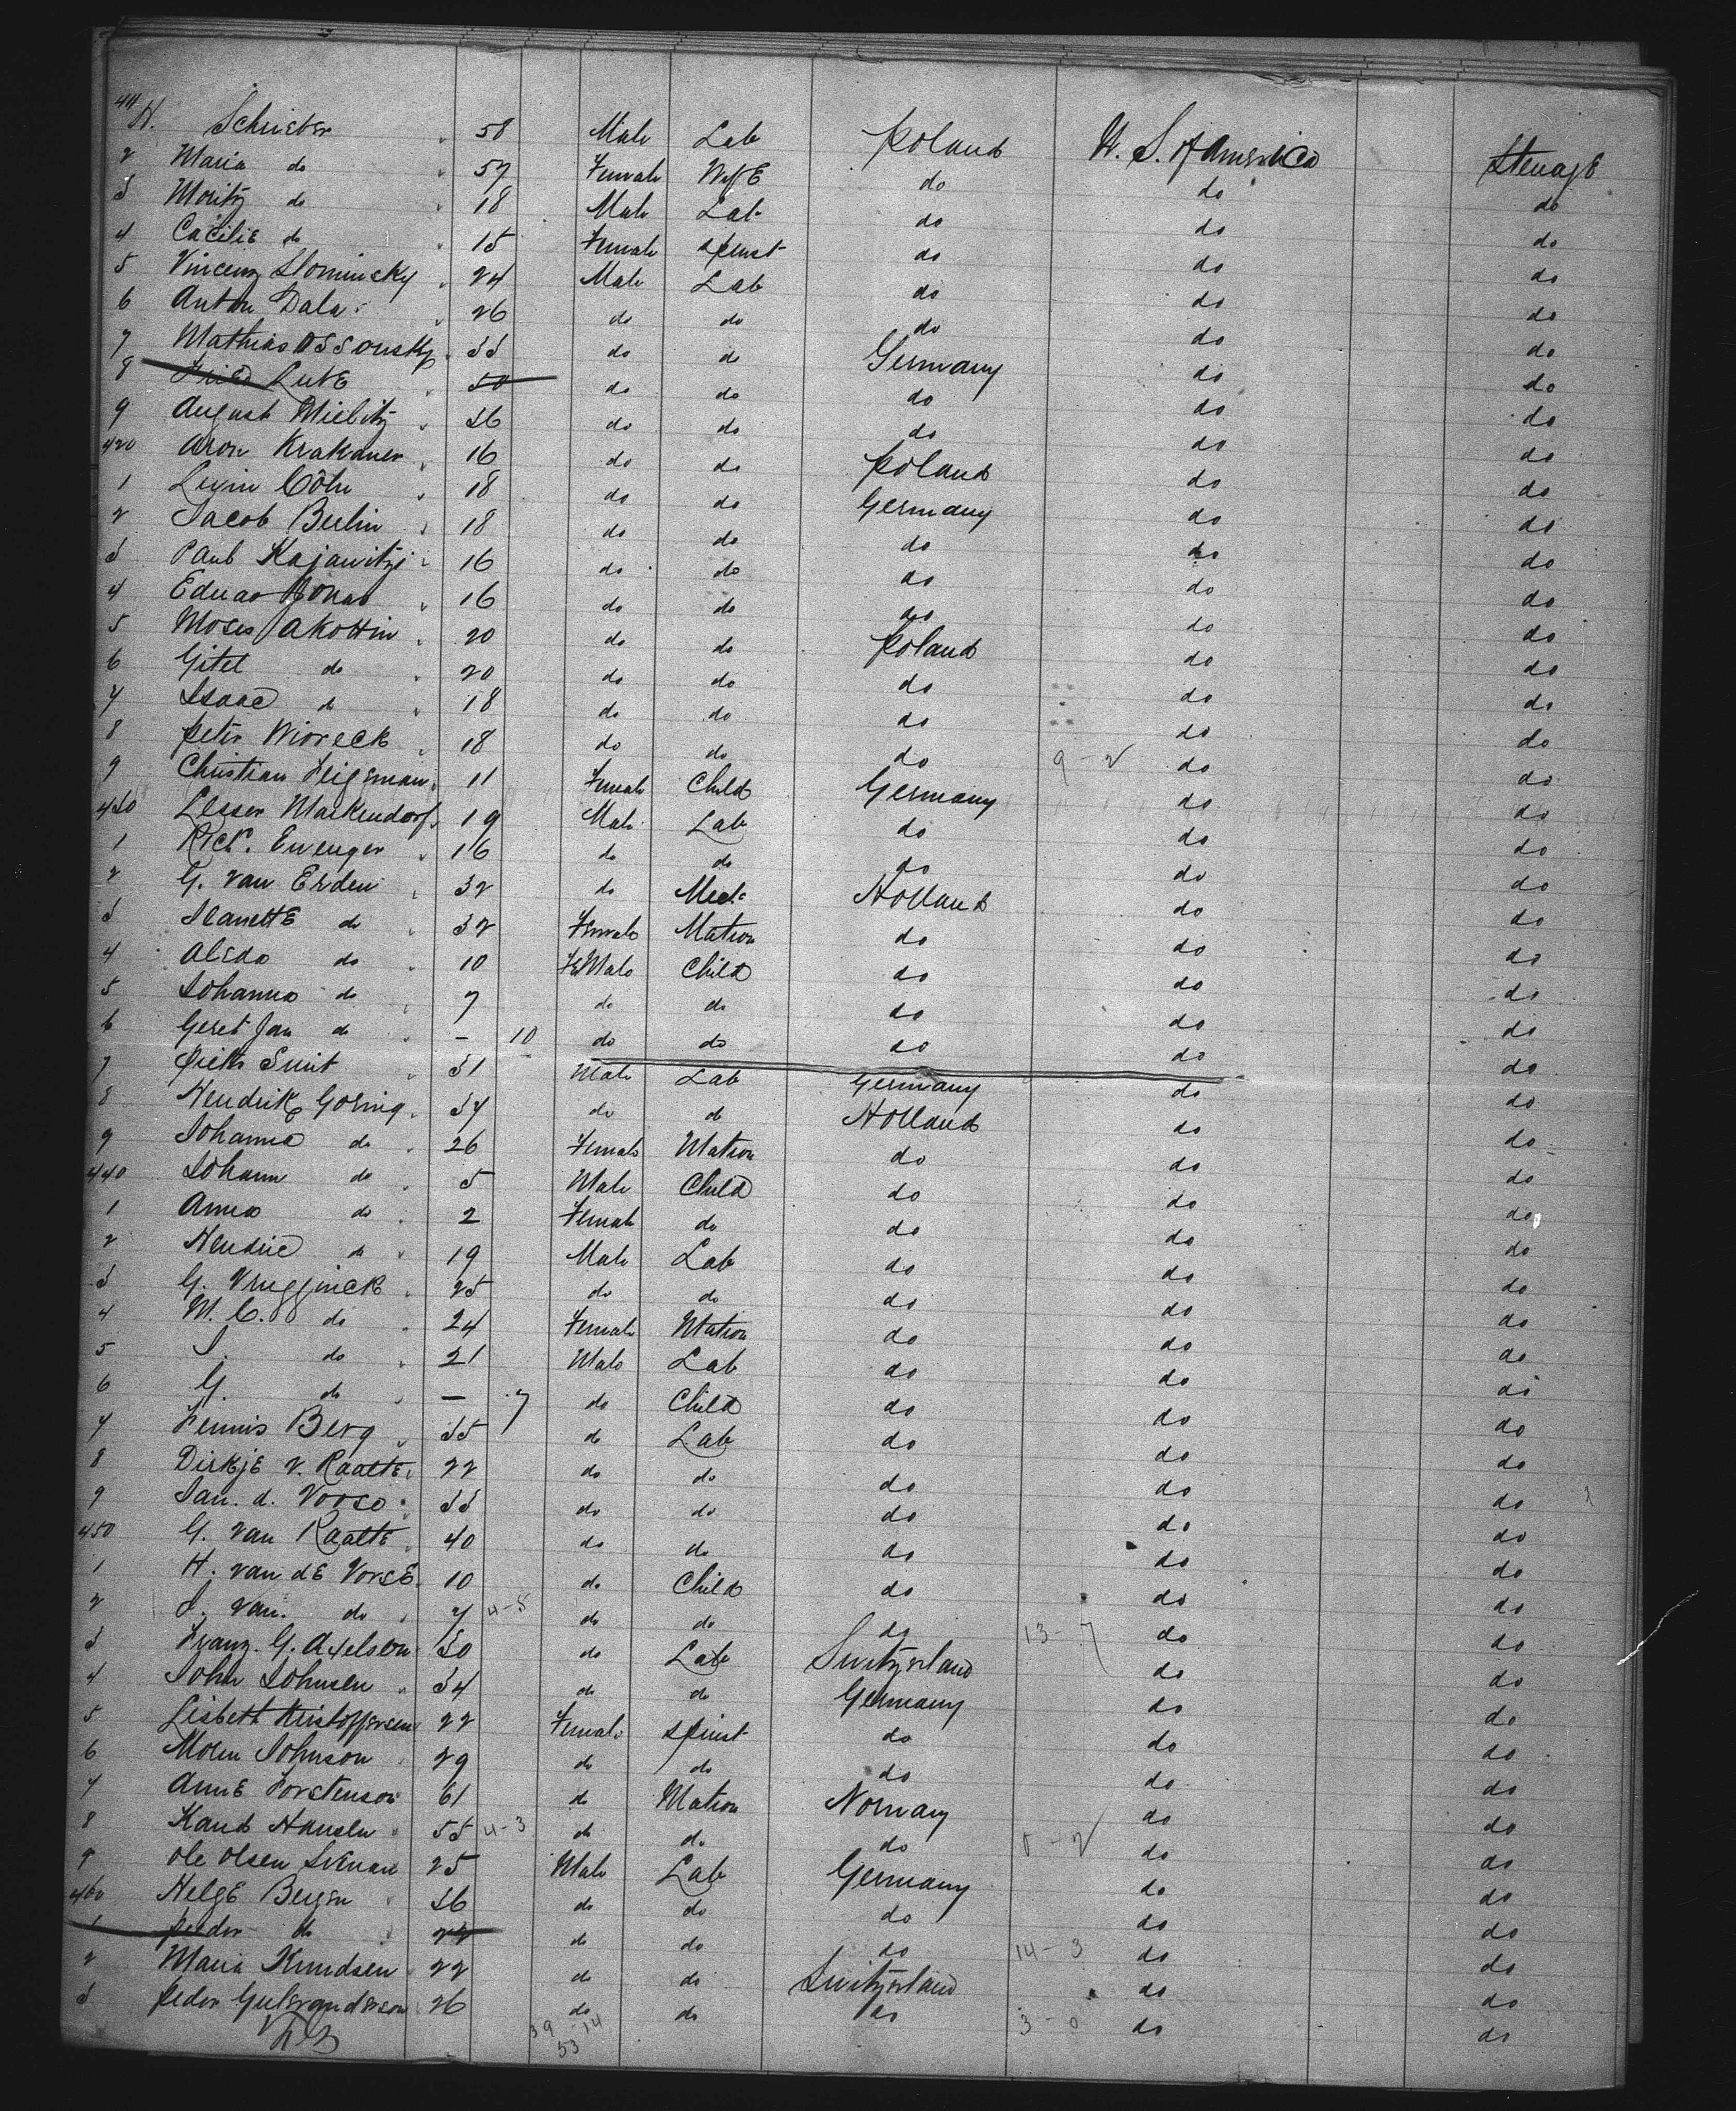 411 H. Schrieber 58 Male Lab Poland U. S. of America Steerage
2 Maria do 57 Female Wife do do do
3 Moritz do 18 Male Lab do do do
4 Cacilie do 15 Female Spinst do do do
5 Vincenz Slominsky 24 Male Lab do do do
6 Anton Dala 26 do do do do do
7 Mathias Ossousky 33 do do Germany do do
8 Fried Lute 50 do do do do do
9 August Mielitz 36 do do do do do
420 Aron Krakauer 16 do do Poland do do
1 Levin Cohn 18 do do Germany do do
2 Jacob Berlin 18 do do do do do
3 Paul Kajawitz 16 do do do do do
4 Eduard Jonas 16 do do do do do
5 Moses Jakottin 20 do do Poland do do
6 Gitel do 20 do do do do do
7 Isaac do 18 do do do do do
8 Peter Wioreck 18 do do do 9-2 do do
9 Christian 11 Female Child Germany do do
430 Lesser Markendorf 19 Male Lab do do do
1 Rich. 16 do do do do do
2 G. van Erden 32 do Mech Holland do do
3 Jeanette do 32 Female Matron do do do
4 Aleda do 10 Female Child do do do
5 Johanna do 7 do do do do do
6 Geret Jan do - 10 do do do do do
7 Pieter Smit 31 Male Lab Germany do do
8 Hendrik Goring 34 do do Holland do do
9 Johanna do 26 Female Matron do do do
440 Johann do 5 Male Child do do do
1 Anna do 2 Female do do do do
2 Hendric do 19 Male Lab do do do
3 G. Vrugginck 25 do do do do do
4 M. C. do 24 Female Matron do do do
5 J. do 21 Male Lab do do do
6 G. do - 7 do Child do do do
7 Tennis Berg 35 do Lab do do do
8 Dirkje v. Raalte 22 do do do do do
9 Jan. d. Vorse 33 do do do do do
450 G. van Raalte 40 do do do do do
1 H. van de Vorse 10 do Child do do do
2 J. van. do 7 4-5 do do do 13-7 do do
3 Franz. G. Axelson 30 do Lab Switzerland do do
4 John Johnsen 34 do do Germany do do
5 Lisbett Kristoffersen 22 Female Spinst do do do
6 Johnson 29 do do do do do
7 Anne Torstenson 61 do Matron Norway do do
8 Hansen 55 4-3 do do do -2 do do
9 Ole Olsen 25 Male Lab Germany do do
460 Helge Bergen 36 do do do do do
1 Peder do 22 do do do 14-3 do do
2 Maria Knudsen 22 do do Switzerland do do
3 Peder 26 do do do 3-0 do do
39 14
53